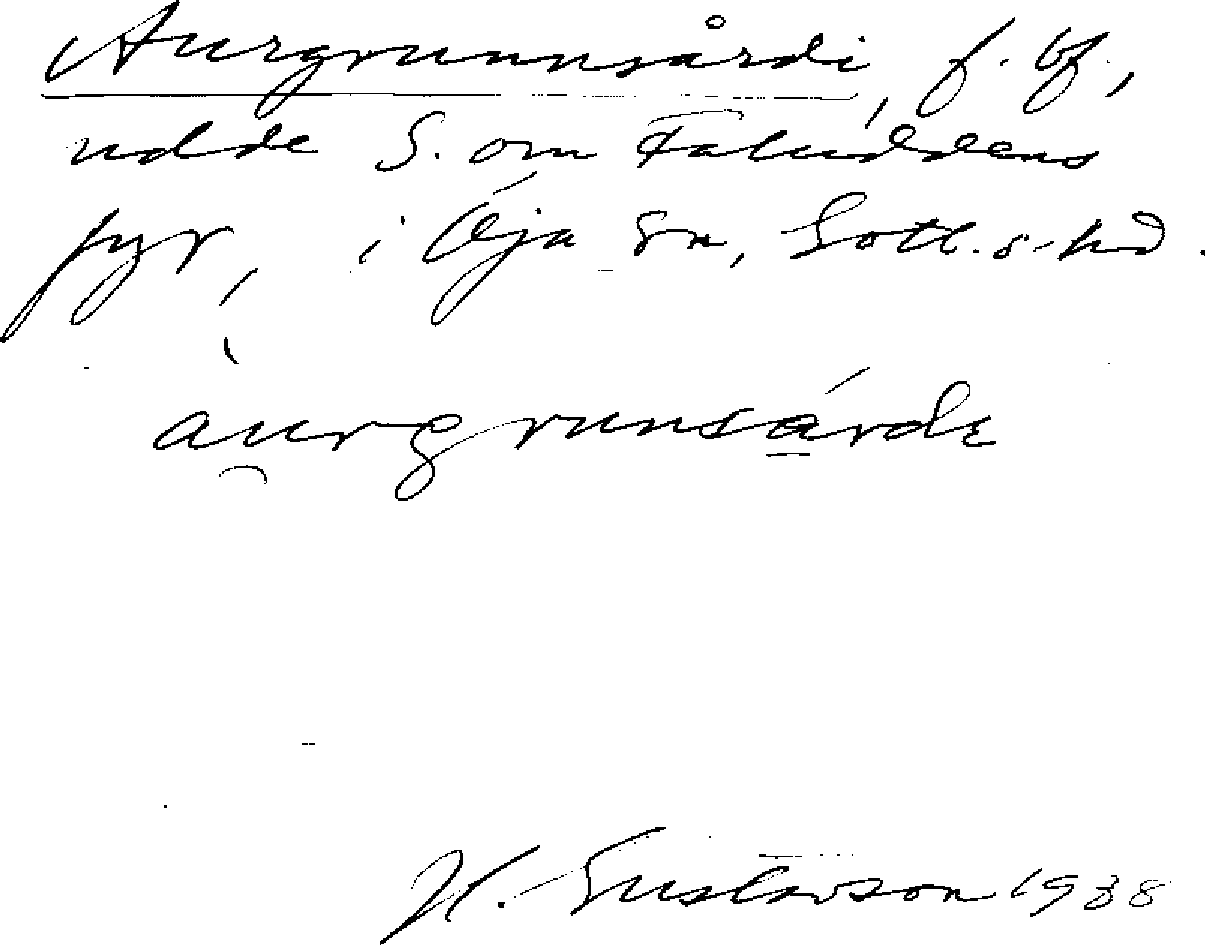 Aurgrunnsårdi, f. bf.,
udde S. om Faluddens
fyr, i Öja sn, Gotl. s. hd.
àu̯rgrunsá̱rdɛ
H. Gustavson 1938